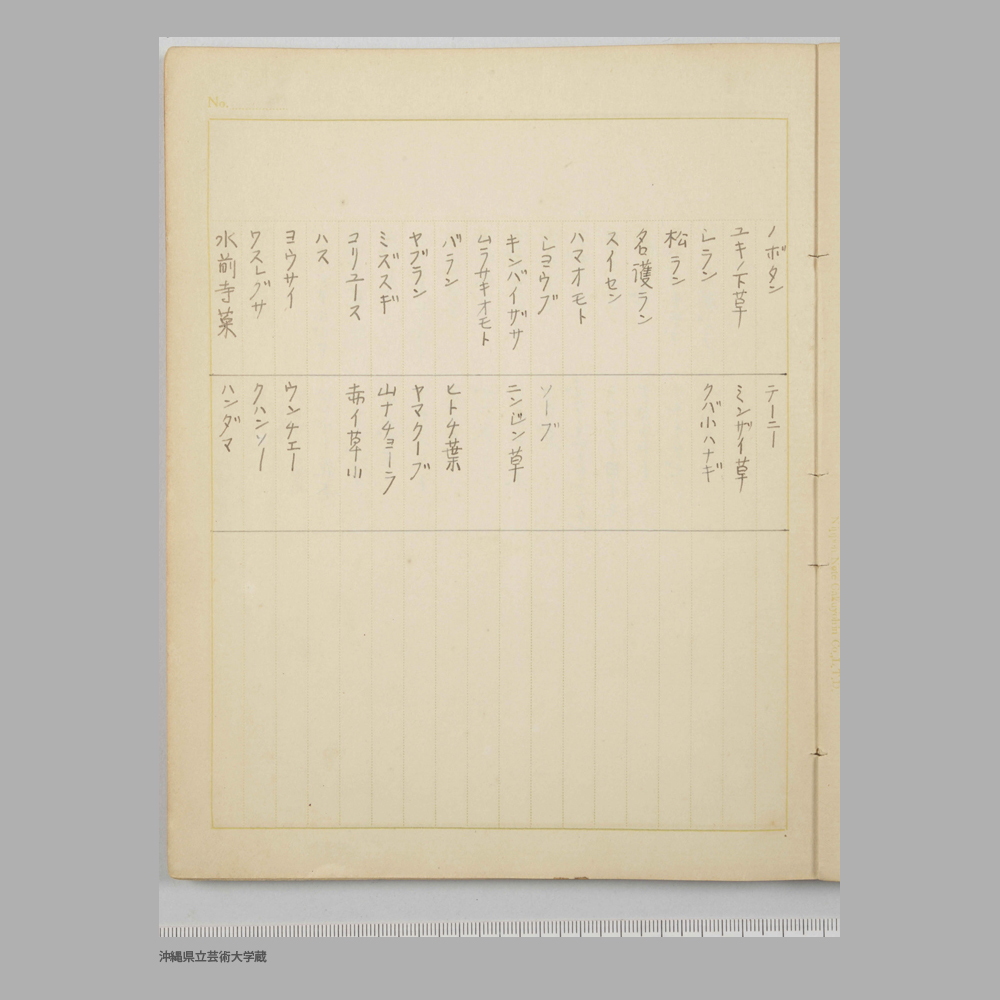 No.
ノボタン テーニー
ユキノ下草 ミンザイ草
シラン クバ小ハナギ
松ラン
名護ラン
スイセン
ハマオモト
シヨウブ ソーブ
キンバイザサ ニンジン草
ムラサキオモト
バラン ヒトチ葉
ヤブラン ヤマクーブ
ミズスギ 山ナチョーラ
コリユース 赤イ草小
ハス
ヨウサイ ウンチエー
ワスレグサ クハンソー
水前寺菜 ハンダマ
沖縄県立芸術大学蔵